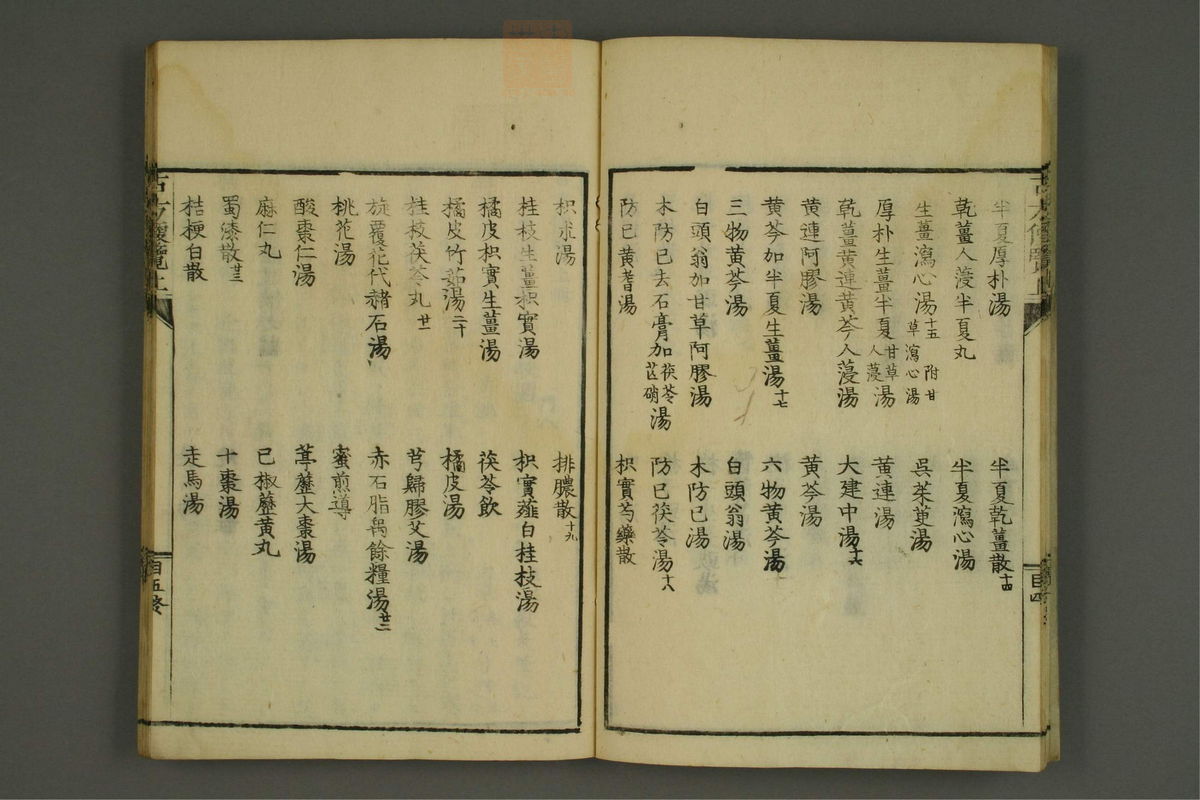 半夏厚朴湯
半夏乾薑散十四
乾薑人薓半夏丸
半夏瀉心湯
生薑瀉心湯十五 附甘草瀉心湯
呉茱萸湯
厚朴生薑半夏甘草人薓湯
黄連湯
乾薑黄連黄芩人薓湯
大建中湯十六
黄連阿膠湯
黄芩湯
黄芩加半夏生薑湯十七
六物黄芩湯
三物黄芩湯
白頭翁湯
白頭翁加甘草阿膠湯
木防已湯
木防已去石膏加茯苓芒硝湯
防已茯苓湯十八
防已黄耆湯
枳實芍藥散
目四
枳朮湯
排膿散十九
桂枝生薑枳實湯
枳實薤白桂枝湯
橘皮枳實生薑湯
茯苓飲
橘皮竹茹湯二十
橘皮湯
桂枝茯苓丸廿一
芎歸膠艾湯
旋覆花代赭石湯
赤石脂禹餘糧湯廿二
桃花湯
蜜煎導
酸棗仁湯
葶藶大棗湯
麻仁丸
已椒藶黄丸
蜀漆散廿三
十棗湯
桔梗白散
走馬湯
古方便覽上
目五終